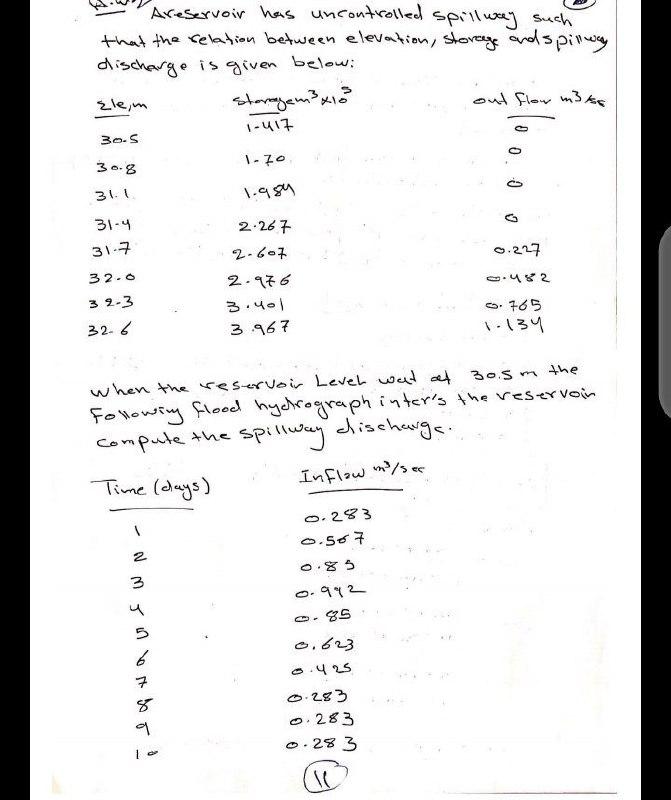 A reservoir has uncontrolled spillway such
that the relation between elevation, storage and spillway
discharge is given below:
Ele,m Storage m³ x10⁵ out flow m³/sec
30.5 1.417 0
30.8 1.70 0
31.1 1.984 0
31.4 2.267 0
31.7 2.607 0.227
32.0 2.976 0.482
32.3 3.401 0.765
32.6 3.967 1.134
when the reservoir Level wat at 30.5 m the
Following flood hydrograph inter's the reservoir
compute the spillway discharge.
Time (days) Inflow m³/sec
1 0.283
2 0.567
3 0.85
4 0.992
5 0.85
6 0.623
7 0.425
8 0.283
9 0.283
10 0.283
11